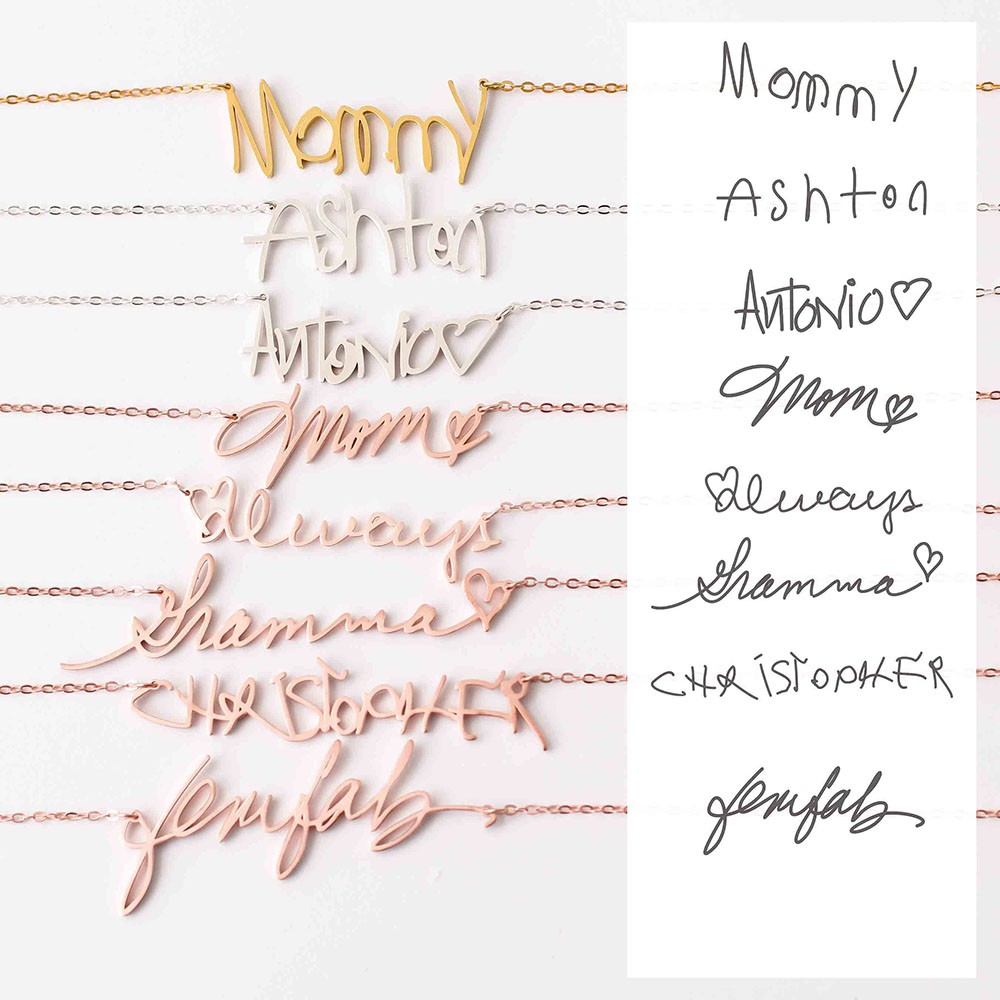 Mommy
Ashton
Antonio
Mom
always
Gramma
CHRISTOPHER
Mommy
Ashton
Antonio
Mom
always
Gramma
CHRISTOPHER